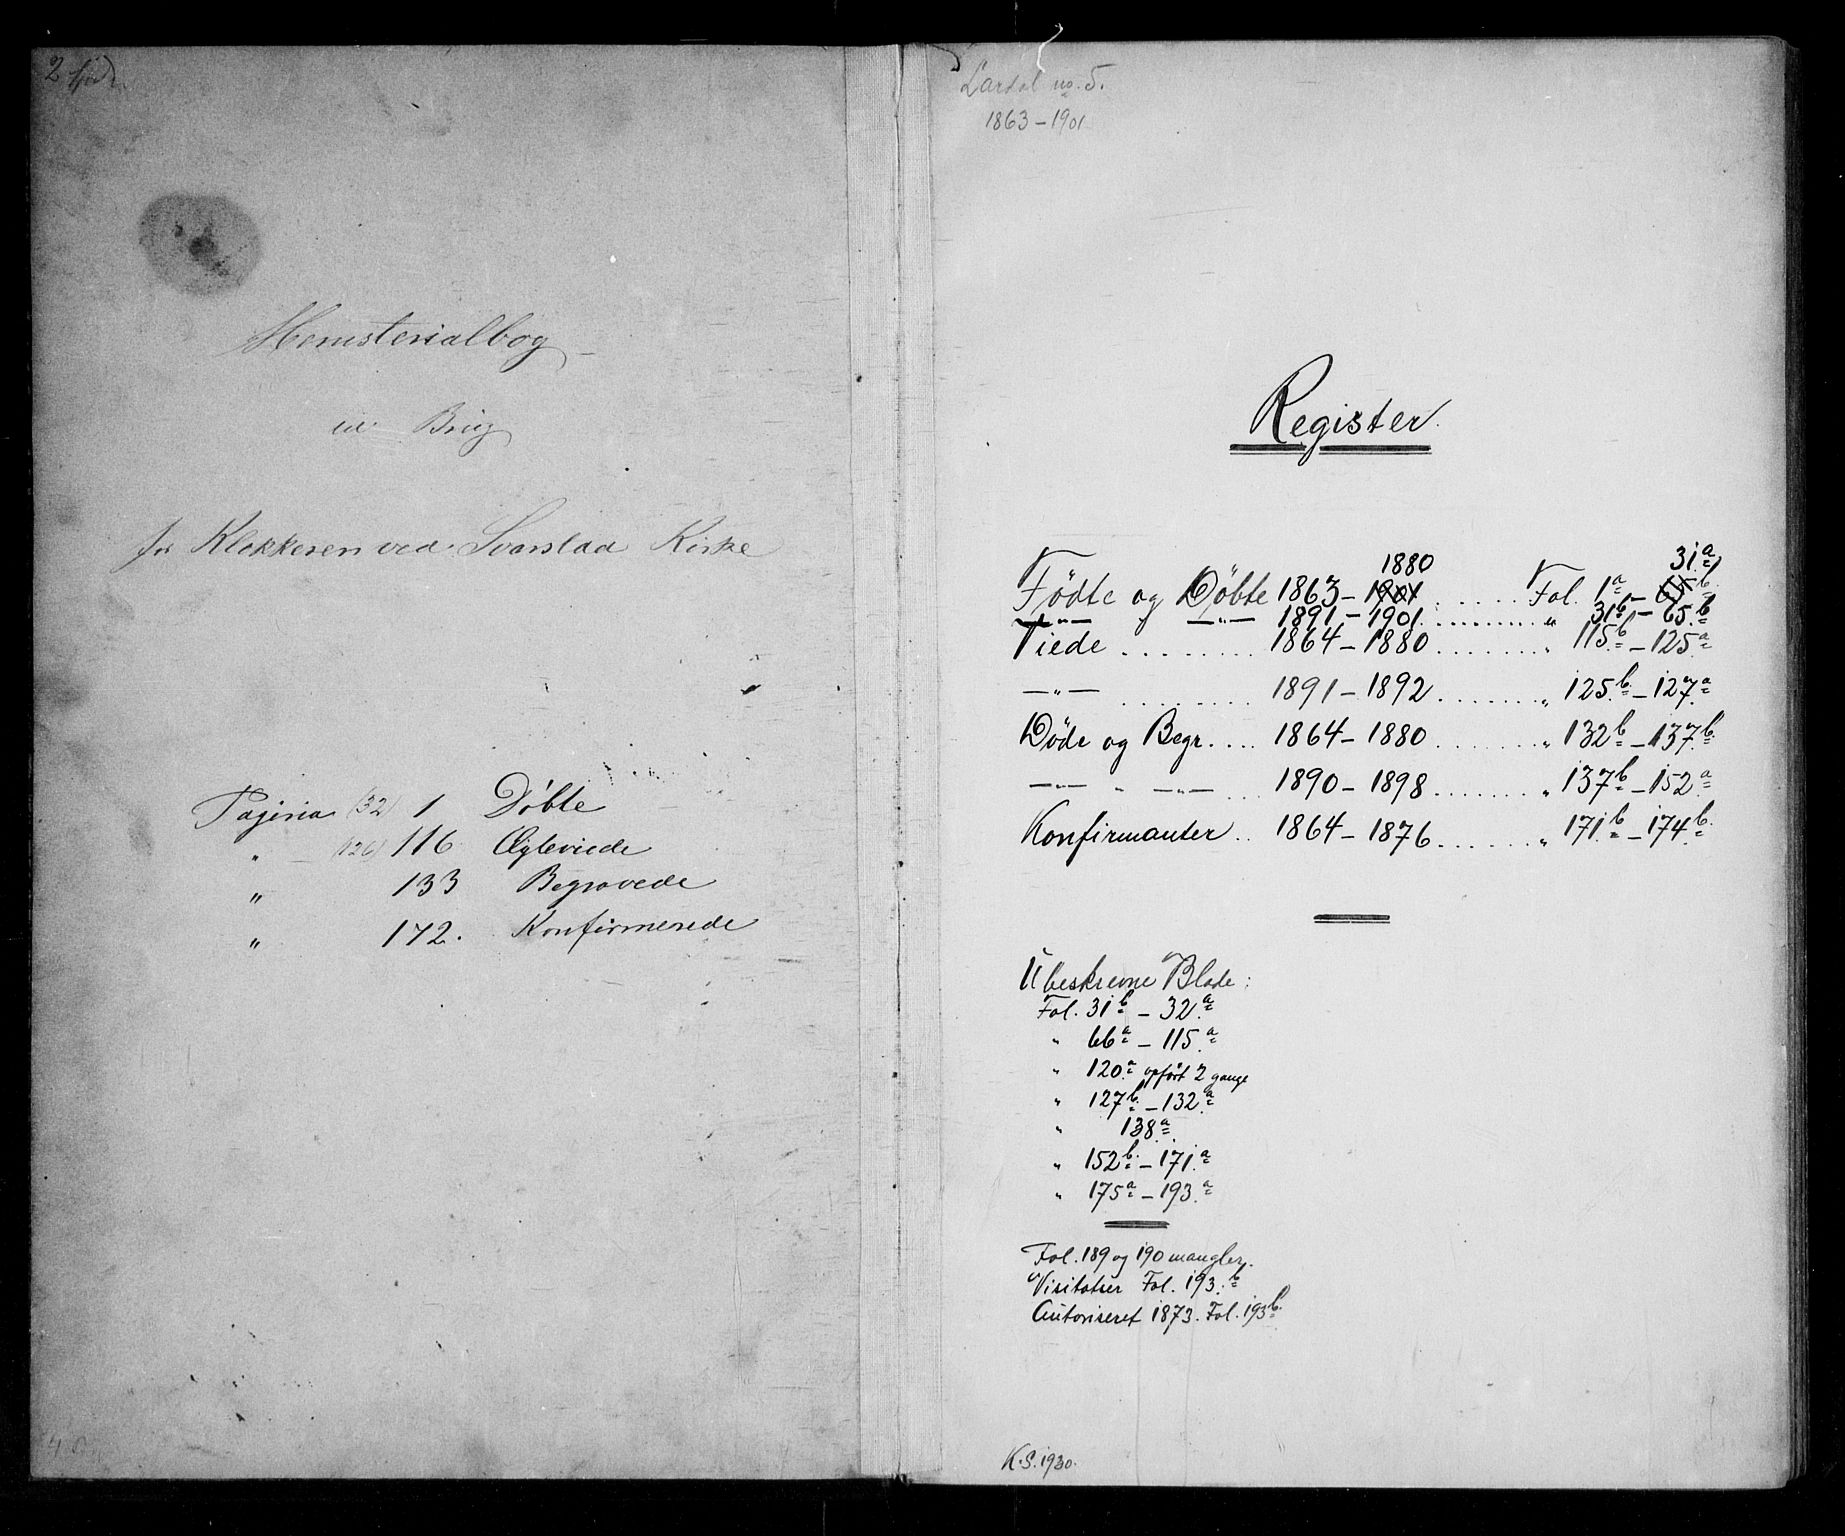 2
Ministerialbog
til Brug
for Klokkeren ved Svarstad Kirke
Pagina (32) 1 Døbte
" (126) 116 Ægteviede
" 133 Begravede
" 172. Konfirmerede
Lardal no. 5.
1863-1901
Register.
1880 31.a
Födte og Döbte 1863-1901 . . . . . Fol. 1a - 65b.
—"— " —"— 1891-1901. . . . . . . . " 31b - 65.b
Viede . . . . . . . . 1864-1880 . . . . . . . " 115b. - 125a.
—"— . . . . . . . . 1891-1892 . . . . . . . " 125.b. - 127.a
Döde og Begr. . . . 1864-1880 . . . . . . . " 132b - 137b.
—"— " —"— . . . 1890-1898 . . . . . . . " 137b - 152a
Konfirmanter . . 1864-1876 . . . . . . . " 171.b - 174b.
Ubeskrevne Blade:
Fol. 31b - 32.a
" 66a - 115.a
" 120.a opfört 2 gange
" 127b. - 132.a
" 138a.
" 152b. - 171.a
" 175a - 193.a
Fol. 189 og 190 mangler.
Visitatser Fol. 193.b
Autoriseret 1873. Fol. 193b.
K.S. 1930.